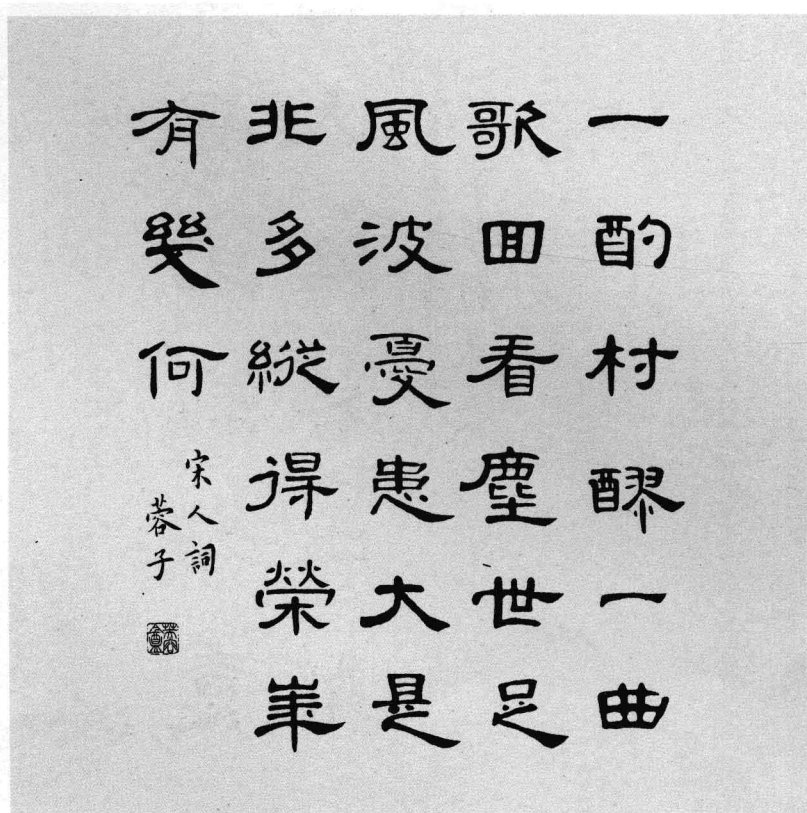 一酌村醪一曲
歌回看塵世足
風波憂患大是
非多縱得榮華
有幾何
宋人詞
蓉子